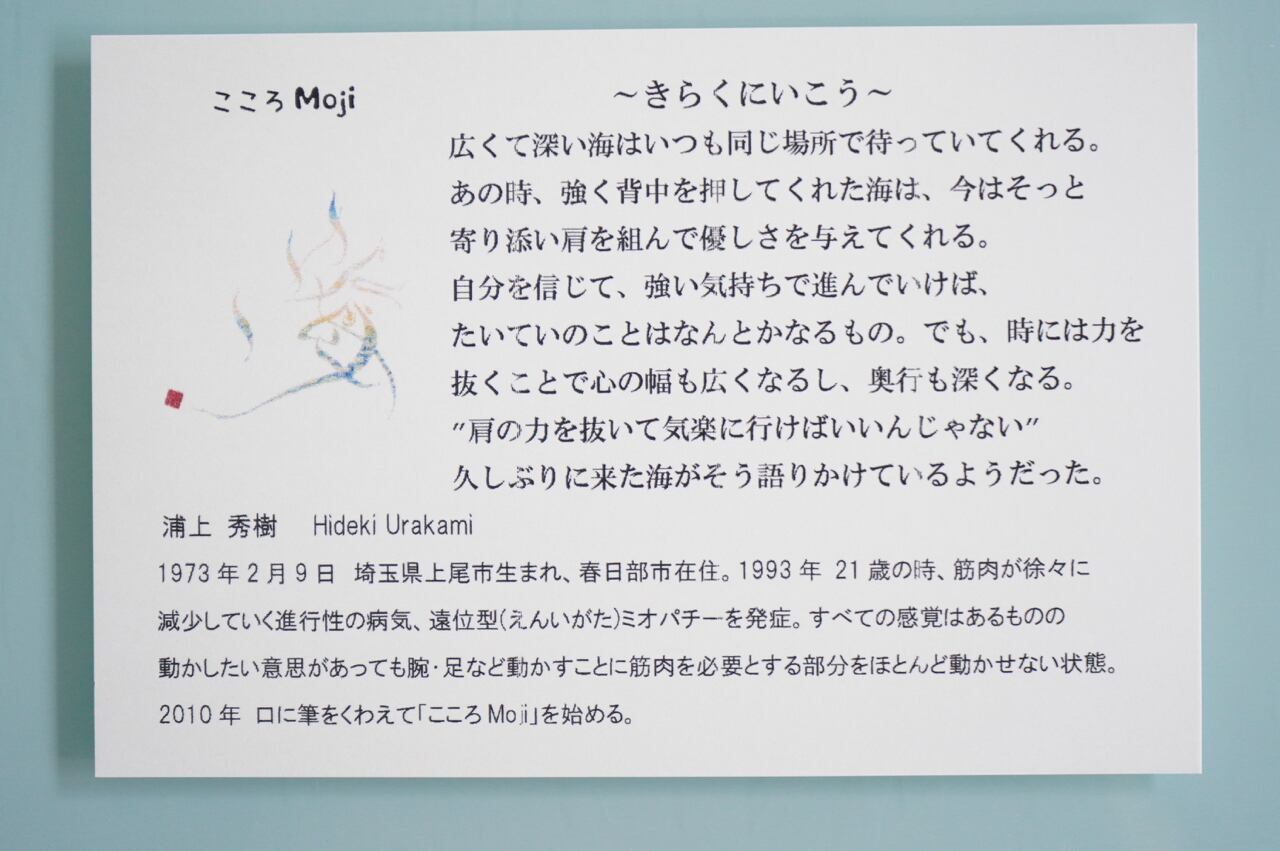 こころMoji
～きらくにいこう～
広くて深い海はいつも同じ場所で待っていてくれる。
あの時、強く背中を押してくれた海は、今はそっと
寄り添い肩を組んで優しさを与えてくれる。
自分を信じて、強い気持ちで進んでいけば、
たいていのことはなんとかなるもの。でも、時には力を
抜くことで心の幅も広くなるし、奥行も深くなる。
"肩の力を抜いて気楽に行けばいいんじゃない"
久しぶりに来た海がそう語りかけているようだった。
浦上 秀樹 Hideki Urakami
1973年2月9日 埼玉県上尾市生まれ、春日部市在住。1993年 21歳の時、筋肉が徐々に
減少していく進行性の病気、遠位型(えんいがた)ミオパチーを発症。すべての感覚はあるものの
動かしたい意思があっても腕・足など動かすことに筋肉を必要とする部分をほとんど動かせない状態。
2010年 口に筆をくわえて「こころMoji」を始める。